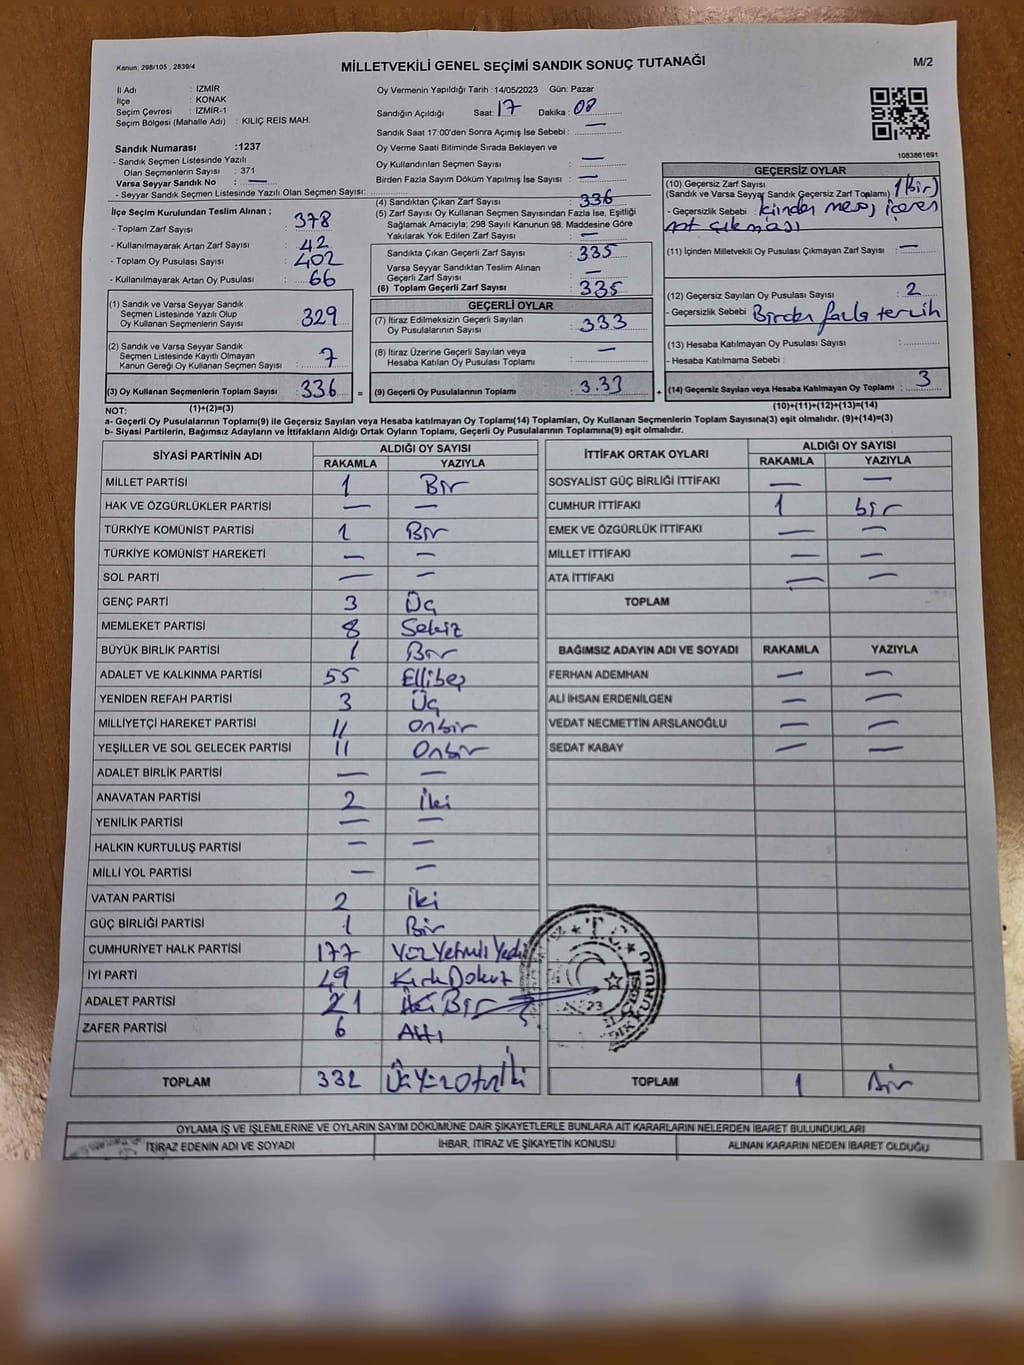 Kanun; 298/105 , 2839/4
MİLLETVEKİLİ GENEL SEÇİMİ SANDIK SONUÇ TUTANAĞI
M/2
İl Adı : İZMİR
İlçe : KONAK
Seçim Çevresi : İZMİR-1
Seçim Bölgesi (Mahalle Adı) : KILIÇ REİS MAH.
Sandık Numarası :1237
- Sandık Seçmen Listesinde Yazılı
Olan Seçmenlerin Sayısı : 371
Varsa Seyyar Sandık No : —
- Seyyar Sandık Seçmen Listesinde Yazılı Olan Seçmen Sayısı:
İlçe Seçim Kurulundan Teslim Alınan ;
- Toplam Zarf Sayısı : 378
- Kullanılmayarak Artan Zarf Sayısı : 42
- Toplam Oy Pusulası Sayısı : 402
- Kullanılmayarak Artan Oy Pusulası : 66
(1) Sandık ve Varsa Seyyar Sandık
Seçmen Listesinde Yazılı Olup
Oy Kullanan Seçmenlerin Sayısı : 329
(2) Sandık ve Varsa Seyyar Sandık
Seçmen Listesinde Kayıtlı Olmayan
Kanun Gereği Oy Kullanan Seçmen Sayısı : 7
(3) Oy Kullanan Seçmenlerin Toplam Sayısı : 336
(1)+(2)=(3)
Oy Vermenin Yapıldığı Tarih : 14/05/2023 Gün: Pazar
Sandığın Açıldığı Saat: 17 Dakika : 08
Sandık Saat 17:00'den Sonra Açımış İse Sebebi : —
Oy Verme Saati Bitiminde Sırada Bekleyen ve
Oy Kullandırılan Seçmen Sayısı : —
Birden Fazla Sayım Döküm Yapılmış İse Sayısı : —
(4) Sandıktan Çıkan Zarf Sayısı : 336
(5) Zarf Sayısı Oy Kullanan Seçmen Sayısından Fazla İse, Eşitliği
Sağlamak Amacıyla; 298 Sayılı Kanunun 98. Maddesine Göre
Yakılarak Yok Edilen Zarf Sayısı : —
Sandıkta Çıkan Geçerli Zarf Sayısı : 335
Varsa Seyyar Sandıktan Teslim Alınan
Geçerli Zarf Sayısı : —
(6) Toplam Geçerli Zarf Sayısı : 335
GEÇERLİ OYLAR
(7) İtiraz Edilmeksizin Geçerli Sayılan
Oy Pusulalarının Sayısı : 333
(8) İtiraz Üzerine Geçerli Sayılan veya
Hesaba Katılan Oy Pusulası Toplamı : —
= (9) Geçerli Oy Pusulalarının Toplamı : 333
1083861691
GEÇERSİZ OYLAR
(10) Geçersiz Zarf Sayısı
(Sandık ve Varsa Seyyar Sandık Geçersiz Zarf Toplamı) : 1(Bir)
- Geçersizlik Sebebi :
çıkması
(11) İçinden Milletvekili Oy Pusulası Çıkmayan Zarf Sayısı : —
(12) Geçersiz Sayılan Oy Pusulası Sayısı : 2
- Geçersizlik Sebebi : Birden fazla tercih
(13) Hesaba Katılmayan Oy Pusulası Sayısı :
- Hesaba Katılmama Sebebi :
+ (14) Geçersiz Sayılan veya Hesaba Katılmayan Oy Toplamı : 3
(10)+(11)+(12)+(13)=(14)
NOT:
a- Geçerli Oy Pusulalarının Toplamı(9) ile Geçersiz Sayılan veya Hesaba katılmayan Oy Toplamı(14) Toplamları, Oy Kullanan Seçmenlerin Toplam Sayısına(3) eşit olmalıdır. (9)+(14)=(3)
b- Siyasi Partilerin, Bağımsız Adayların ve İttifakların Aldığı Ortak Oyların Toplamı, Geçerli Oy Pusulalarının Toplamına(9) eşit olmalıdır.
SİYASİ PARTİNİN ADI ALDIĞI OY SAYISI
RAKAMLA YAZIYLA
MİLLET PARTİSİ 1 Bir
HAK VE ÖZGÜRLÜKLER PARTİSİ — —
TÜRKİYE KOMÜNİST PARTİSİ 1 Bir
TÜRKİYE KOMÜNİST HAREKETİ — —
SOL PARTİ — —
GENÇ PARTİ 3 Üç
MEMLEKET PARTİSİ 8 Sekiz
BÜYÜK BİRLİK PARTİSİ 1 Bir
ADALET VE KALKINMA PARTİSİ 55 Ellibeş
YENİDEN REFAH PARTİSİ 3 Üç
MİLLİYETÇİ HAREKET PARTİSİ 11 Onbir
YEŞİLLER VE SOL GELECEK PARTİSİ 11 Onbir
ADALET BİRLİK PARTİSİ — —
ANAVATAN PARTİSİ 2 İki
YENİLİK PARTİSİ — —
HALKIN KURTULUŞ PARTİSİ — —
MİLLİ YOL PARTİSİ — —
VATAN PARTİSİ 2 İki
GÜÇ BİRLİĞİ PARTİSİ 1 Bir
CUMHURİYET HALK PARTİSİ 177 YüzYetmişYedi
İYİ PARTİ 49 KırkDokuz
ADALET PARTİSİ 1 Bir
ZAFER PARTİSİ 6 Altı
TOPLAM 332 ÜçYüzOtuzİki
İTTİFAK ORTAK OYLARI ALDIĞI OY SAYISI
RAKAMLA YAZIYLA
SOSYALİST GÜÇ BİRLİĞİ İTTİFAKI — —
CUMHUR İTTİFAKI 1 bir
EMEK VE ÖZGÜRLÜK İTTİFAKI — —
MİLLET İTTİFAKI — —
ATA İTTİFAKI — —
TOPLAM
BAĞIMSIZ ADAYIN ADI VE SOYADI RAKAMLA YAZIYLA
FERHAN ADEMHAN — —
ALİ İHSAN ERDENİLGEN — —
VEDAT NECMETTİN ARSLANOĞLU — —
SEDAT KABAY — —
TOPLAM 1 Bir
OYLAMA İŞ VE İŞLEMLERİNE VE OYLARIN SAYIM DÖKÜMÜNE DAİR ŞİKAYETLERLE BUNLARA AİT KARARLARIN NELERDEN İBARET BULUNDUKLARI
İTİRAZ EDENİN ADI VE SOYADI İHBAR, İTİRAZ VE ŞİKAYETİN KONUSU ALINAN KARARIN NEDEN İBARET OLDUĞU